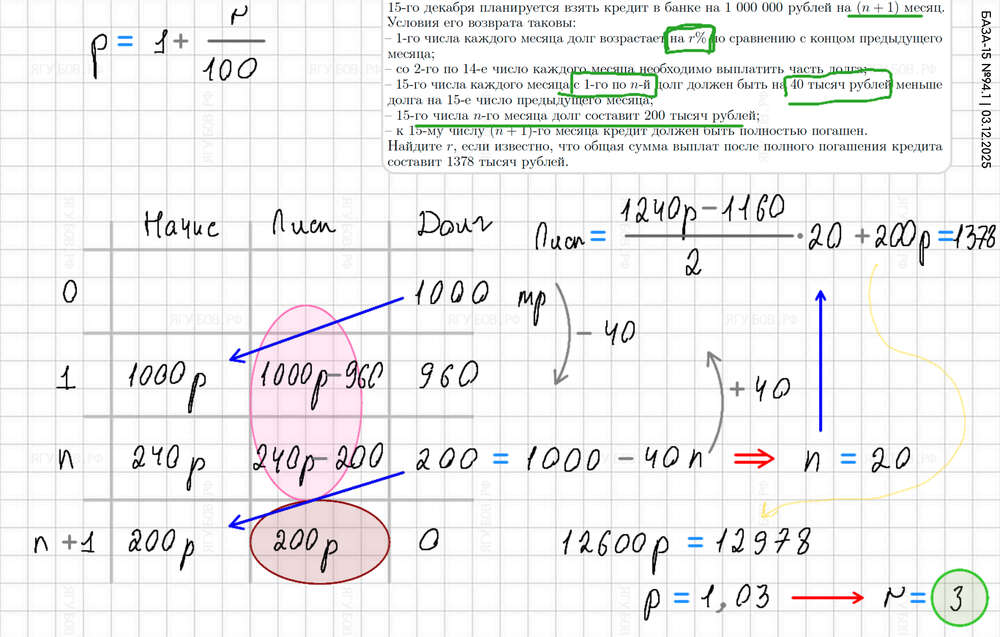 15-го декабря планируется взять кредит в банке на 1 000 000 рублей на (n + 1) месяц.
Условия его возврата таковы:
– 1-го числа каждого месяца долг возрастает на r% по сравнению с концом предыдущего
месяца;
– со 2-го по 14-е число каждого месяца необходимо выплатить часть долга;
– 15-го числа каждого месяца с 1-го по n-й долг должен быть на 40 тысяч рублей меньше
долга на 15-е число предыдущего месяца;
– 15-го числа n-го месяца долг составит 200 тысяч рублей;
– к 15-му числу (n + 1)-го месяца кредит должен быть полностью погашен.
Найдите r, если известно, что общая сумма выплат после полного погашения кредита
составит 1378 тысяч рублей.
БАЗА-15 №94.1 | 03.12.2025
p = 1 + r/100
Начис Лист Долг
0 1000 тр
1 1000p 1000p-960 960
n 240p 240p-200 200 = 1000 - 40n ⇒ n = 20
n+1 200p 200p 0
- 40
+ 40
Лист = (1240p-1160)/2 · 20 + 200p = 1378
12600p = 12978
p = 1,03 → r = 3
ЯГУБОВ.РФ